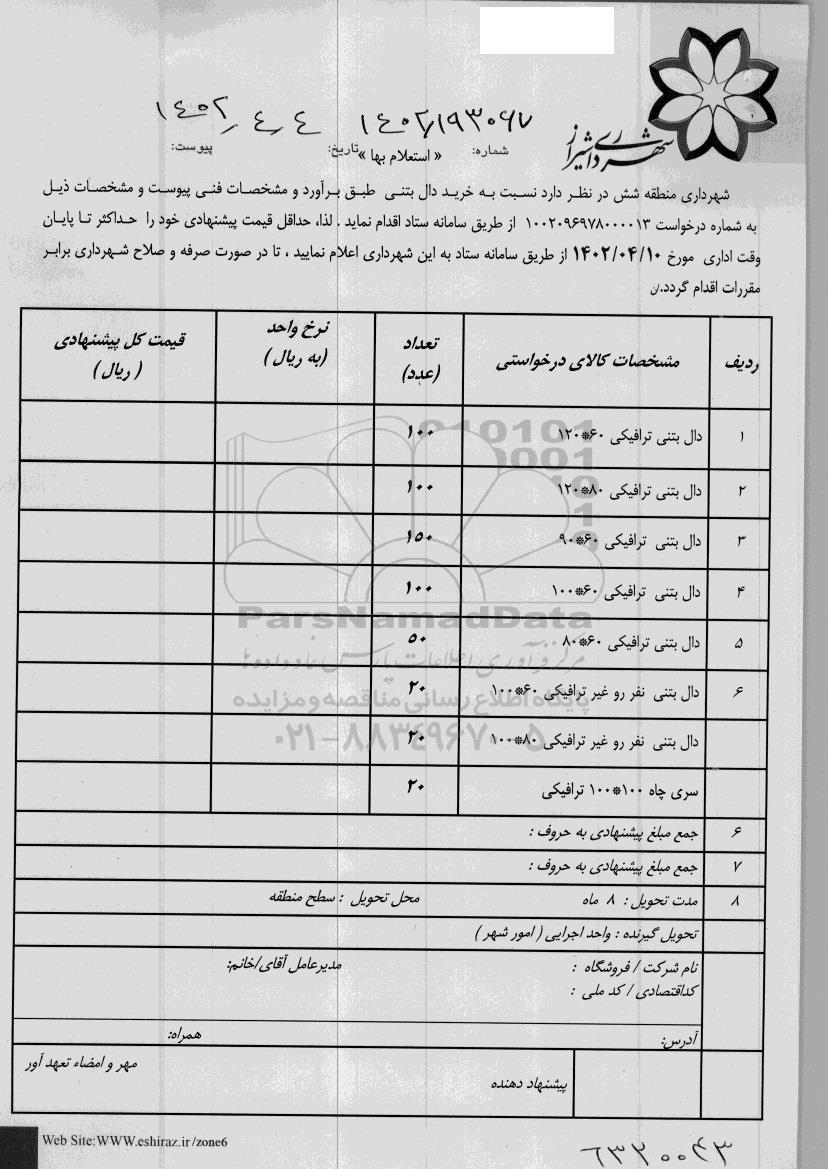 شهرداری شیراز
۱۴۰۲/۱۹۳۰۶۷ ۱۴۰۲/۴/۴
شماره: « استعلام بها » تاریخ: پیوست:
شهرداری منطقه شش در نظر دارد نسبت به خرید دال بتنی طبق برآورد و مشخصات فنی پیوست و مشخصات ذیل
به شماره درخواست ۱۰۰۲۰۹۶۹۷۸۰۰۰۰۱۳ از طریق سامانه ستاد اقدام نماید . لذا، حداقل قیمت پیشنهادی خود را حداکثر تا پایان
وقت اداری مورخ ۱۴۰۲/۰۴/۱۰ از طریق سامانه ستاد به این شهرداری اعلام نمایید ، تا در صورت صرفه و صلاح شهرداری برابر
مقررات اقدام گردد.ن
ردیف مشخصات کالای درخواستی تعداد (عدد) نرخ واحد (به ریال ) قیمت کل پیشنهادی ( ریال )
۱ دال بتنی ترافیکی ۶۰*۱۲۰ ۱۰۰
۲ دال بتنی ترافیکی ۸۰*۱۲۰ ۱۰۰
۳ دال بتنی ترافیکی ۶۰*۹۰ ۱۵۰
۴ دال بتنی ترافیکی ۶۰*۱۰۰ ۱۰۰
۵ دال بتنی ترافیکی ۶۰*۸۰ ۵۰
۶ دال بتنی نفر رو غیر ترافیکی ۶۰*۱۰۰ ۲۰
دال بتنی نفر رو غیر ترافیکی ۸۰*۱۰۰ ۲۰
سری چاه ۱۰۰*۱۰۰ ترافیکی ۲۰
۶ جمع مبلغ پیشنهادی به حروف :
۷ جمع مبلغ پیشنهادی به حروف :
۸ مدت تحویل : ۸ ماه محل تحویل : سطح منطقه
تحویل گیرنده : واحد اجرایی ( امور شهر )
نام شرکت / فروشگاه : مدیرعامل آقای/خانم:
کداقتصادی / کد ملی :
آدرس: همراه:
پیشنهاد دهنده مهر و امضاء تعهد آور
Web Site:WWW.eshiraz.ir/zone6
۶۳۲۰۰۴۳
ParsNamadData
مرکز فرآوری اطلاعات پارس نماد داده ها
پایگاه اطلاع رسانی مناقصه و مزایده
۰۲۱-۸۸۳۴۹۶۷۰-۵